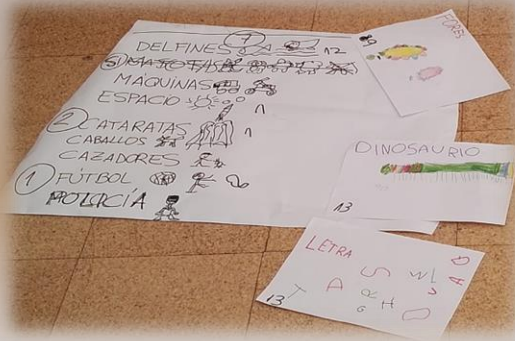 DELFINES 12
MÁQUINAS
ESPACIO 1
2 CATARATAS 1
CABALLOS
CAZADORES
1 FÚTBOL
POLICÍA
DINOSAURIO
13
LETRA
S W L
A D
A R H
G
13 T